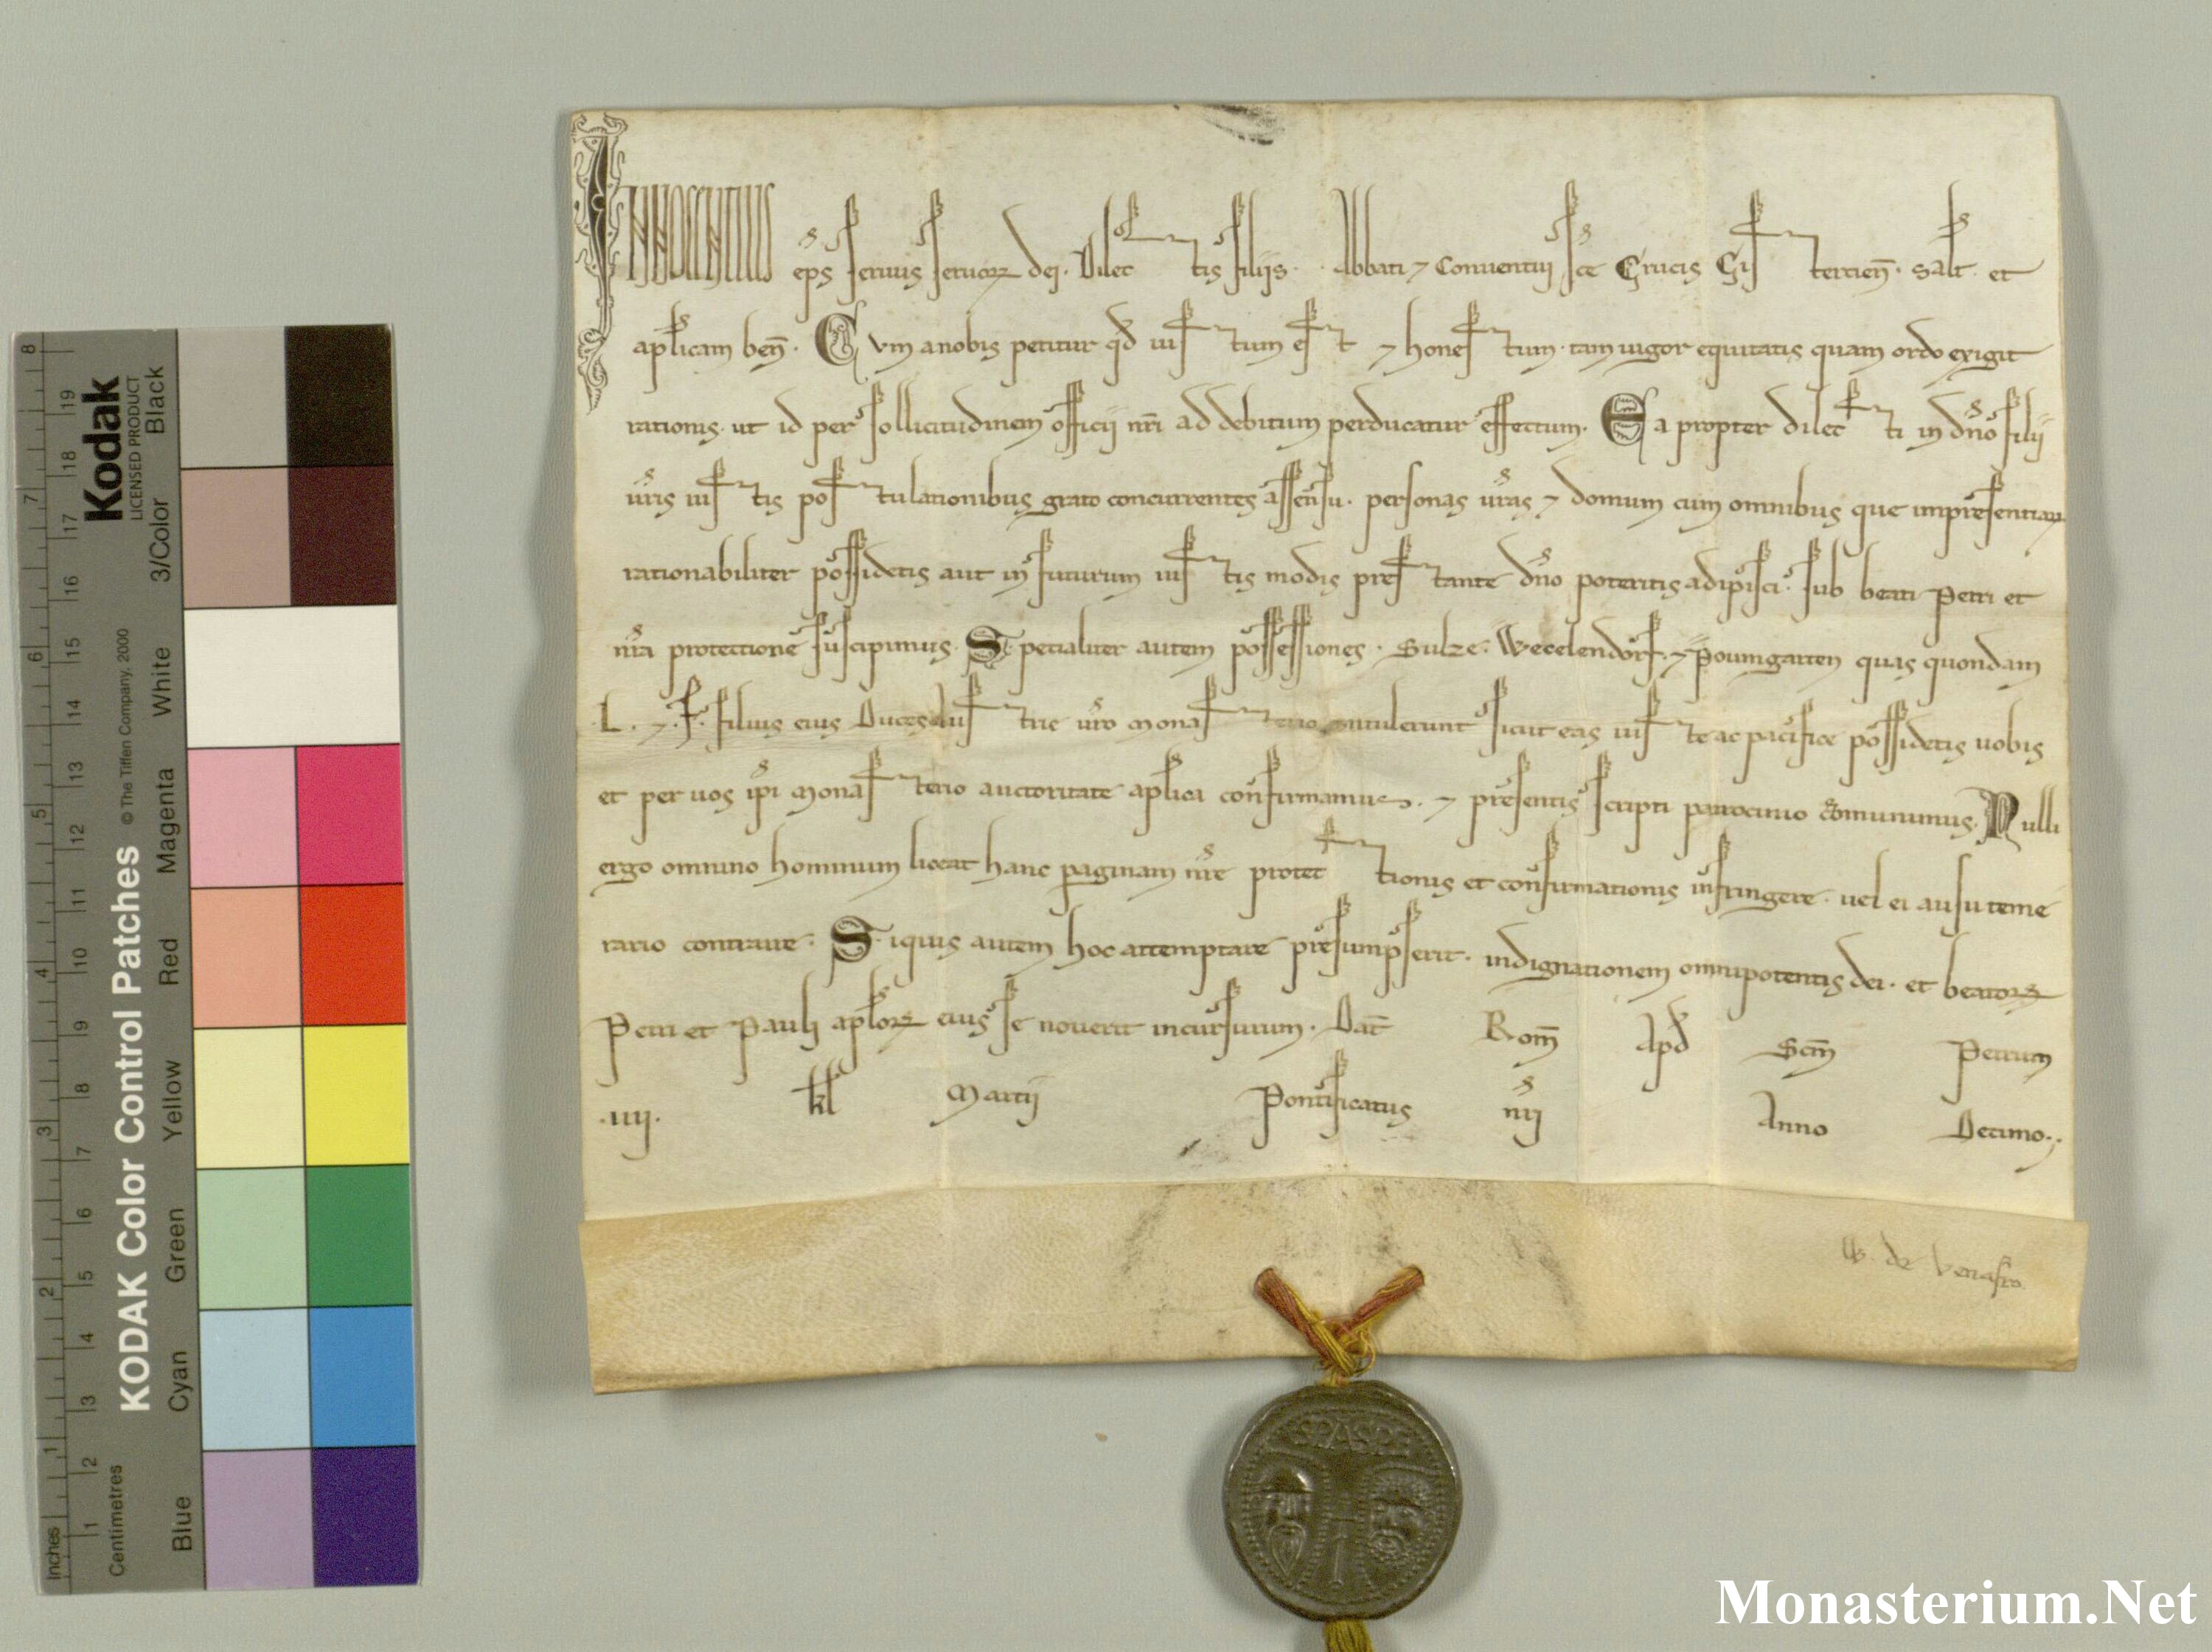 INNOCENTIUS ep̄s seruus seruoꝝ dei. Dilectis filiis. . Abbati ⁊ Conuentui sc̄e Crucis Cisterciеn̄. salt̄. et
ap̄licam ben̄. Cum anobis petitur qd̄ iustum est ⁊ honestum. tam uigor equitatis quam ordo exigit
rationis. ut id per sollicitudinem officii nr̄i ad debitum perducatur effectum. Ea propter dilecti in dn̄o filii
ur̄is iustis postulationibus grato concurrentes assensu. personas ur̄as ⁊ domum cum omnibus que impresentiaꝝ
rationabiliter possidetis aut in futurum iustis modis prestante dn̄o poteritis adipisci. sub beati Petri et
nr̄a protectione suscipimus. Specialiter autem possessiones. Sulze. Wecelendorf. ⁊ Poumgarten quas quondam
.L. ⁊ .F. filius eius Duces Austrie ur̄o Monasterio contulerunt sicut eas iuste ac pacifice possidetis uobis
et per uos ip̄i Monasterio auctoritate ap̄lica confirmamus. ⁊ presentis scripti patrocinio cōmunimus. Nulli
ergo omnino hominum liceat hanc paginam nr̄e protectionis et confirmationis infringere. uel ei ausu teme
rario contraire. Siquis autem hoc attemptare presumpserit. indignationem omnipotentis dei. et beatoꝝ
Petri et Pauli ap̄loꝝ eius se nouerit incursurum. Dat̄ Rom̄ Apd̄ Scm̄ Petrum
.iiij. kl̄ Martij Pontificatus nr̄i Anno Decimo.
W. de Venafro.
SPASPE
KODAK Color Control Patches © The Tiffen Company, 2000
Kodak
LICENSED PRODUCT
Inches 1 2 3 4 5 6 7 8
Centimetres 1 2 3 4 5 6 7 8 9 10 11 12 13 14 15 16 17 18 19
Blue Cyan Green Yellow Red Magenta White 3/Color Black
Monasterium.Net